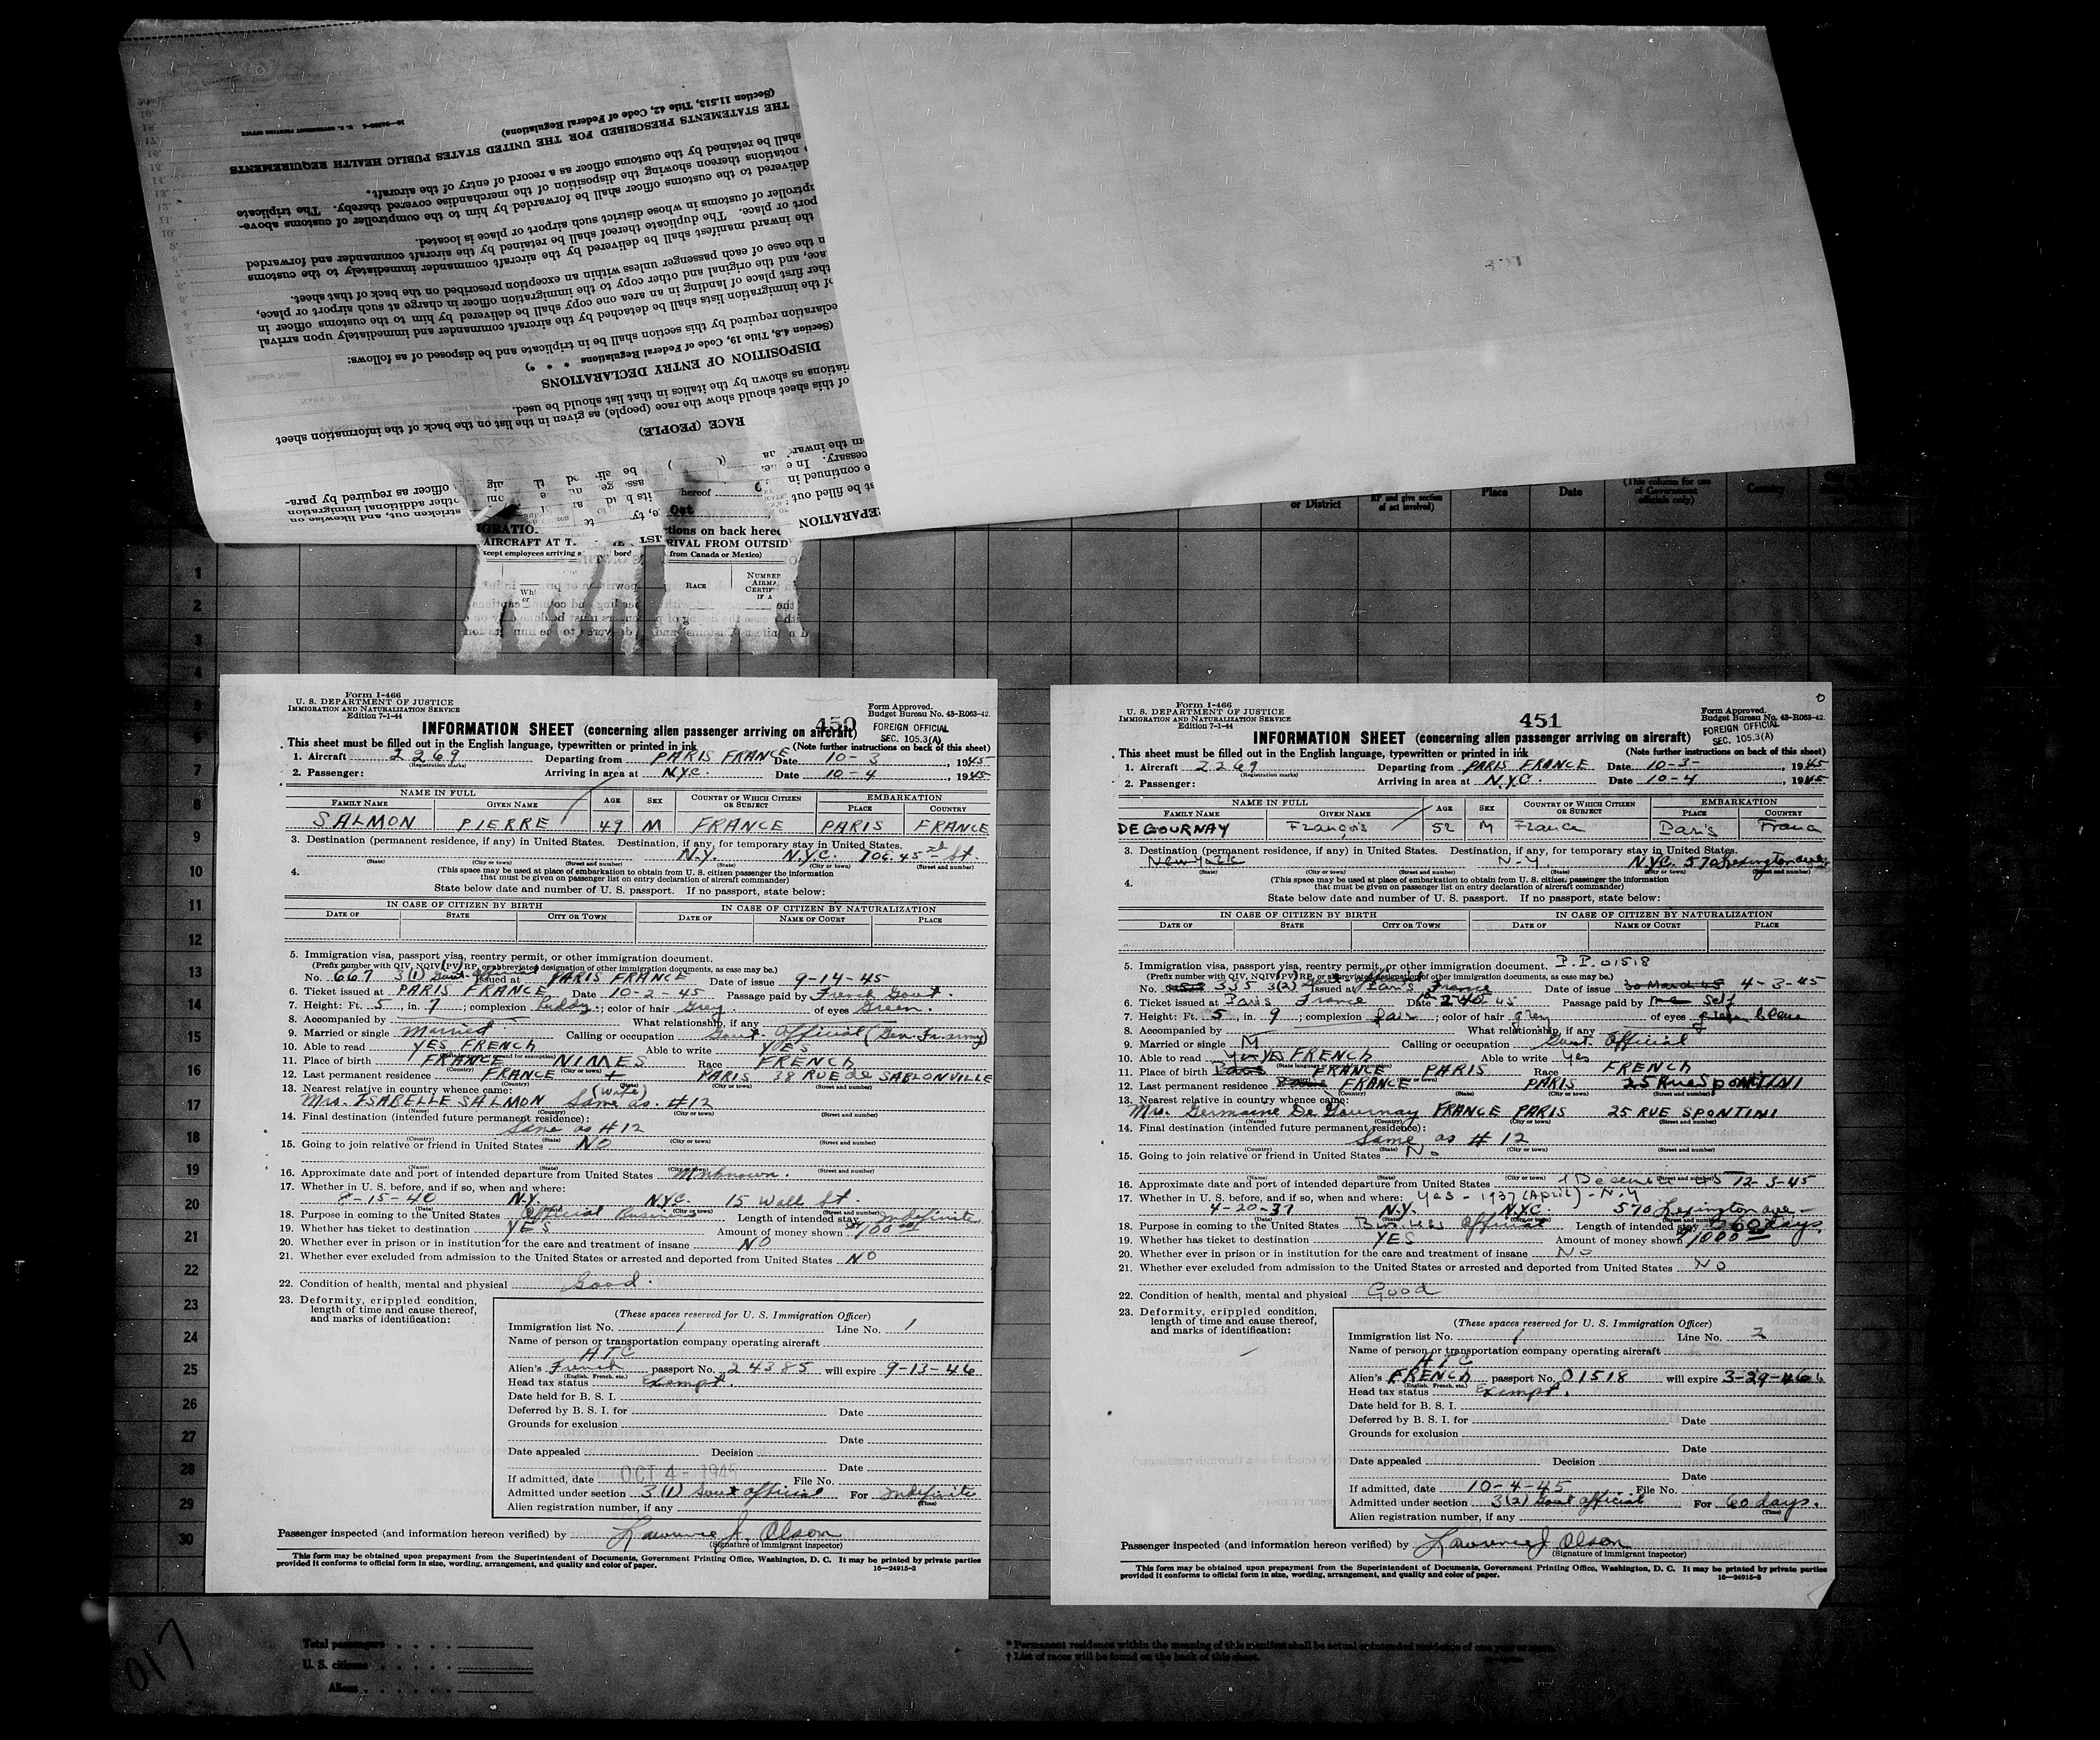 16—24959-4 U. S. GOVERNMENT PRINTING OFFICE
(Section 11.513, Title 42, Code of Federal Regulations)
THE STATEMENTS PRESCRIBED FOR THE UNITED STATES PUBLIC HEALTH REQUIREMENTS
shall be retained by the customs officer as a record of entry of the aircraft.
notations thereon showing the disposition of the merchandise covered thereby. The triplicate
delivered to the customs officer shall be forwarded by him to the comptroller of customs above-
ptroller of customs in whose district such airport or place is located.
port or place. The duplicate thereof shall be retained by the aircraft commander and forwarded
the inward manifest shall be delivered by the aircraft commander immediately to the customs
n the case of each passenger unless within an exception prescribed on the back of that sheet.
ace, and the original and other copy to the immigration officer in charge at such airport or place,
ther first place of landing in an area one copy shall be delivered by him to the customs officer in
of the immigration lists shall be detached by the aircraft commander and immediately upon arrival
eclaration required by this section shall be in triplicate and be disposed of as follows:
(Section 4.8, Title 19, Code of Federal Regulations * * *)
DISPOSITION OF ENTRY DECLARATIONS
viations as shown by the italics in that list should be used.
of this sheet should show the race (people) as given in the list on the back of the information sheet
RACE (PEOPLE)
officer as required by para-
other additional immigration
stricken out, and likewise on
EPARATION
hereof
tions on back hereo
AIRCRAFT AT
RIVAL FROM OUTSID
from Canada or Mexico)
RACE
NUMBER
or District
RP and give section
of act involved)
Place
Date
(This column for use
of Government
officials only)
Country
1
2
3
4
5
6
7
8
9
10
11
12
13
14
15
16
17
18
19
20
21
22
23
24
25
26
27
28
29
30
Form I-466
U. S. DEPARTMENT OF JUSTICE
IMMIGRATION AND NATURALIZATION SERVICE
Edition 7-1-44
450
Form Approved.
Budget Bureau No. 43-R063-42.
INFORMATION SHEET (concerning alien passenger arriving on aircraft)
FOREIGN OFFICIAL
SEC. 105.3(A)
This sheet must be filled out in the English language, typewritten or printed in ink (Note further instructions on back of this sheet)
1. Aircraft 2269 Departing from PARIS FRANCE Date 10-3, 1945
(Registration marks)
2. Passenger: Arriving in area at N.Y.C. Date 10-4, 1945
NAME IN FULL AGE SEX COUNTRY OF WHICH CITIZEN OR SUBJECT EMBARKATION
FAMILY NAME GIVEN NAME PLACE COUNTRY
SALMON PIERRE 49 M FRANCE PARIS FRANCE
3. Destination (permanent residence, if any) in United States. Destination, if any, for temporary stay in United States.
N.Y. N.Y.C. 70E. 45th St.
(State) (City or town) (Street and number) (State) (City or town) (Street and number)
4. (This space may be used at place of embarkation to obtain from U. S. citizen passenger the information
that must be given on passenger list on entry declaration of aircraft commander)
State below date and number of U. S. passport. If no passport, state below:
IN CASE OF CITIZEN BY BIRTH IN CASE OF CITIZEN BY NATURALIZATION
DATE OF STATE CITY OR TOWN DATE OF NAME OF COURT PLACE
5. Immigration visa, passport visa, reentry permit, or other immigration document.
(Prefix number with QIV, NQIV, PV, RP, or abbreviated designation of other immigration documents, as case may be.)
No. 667 3(1) Govt. official Issued at PARIS FRANCE Date of issue 9-14-45
6. Ticket issued at PARIS FRANCE Date 10-2-45 Passage paid by French Govt.
7. Height: Ft. 5, in. 7; complexion Ruddy; color of hair Grey of eyes Green.
8. Accompanied by What relationship, if any
9. Married or single Married Calling or occupation Govt. Official (Gen. Fr. army)
10. Able to read YES FRENCH Able to write YES
11. Place of birth FRANCE NIMES Race FRENCH
12. Last permanent residence FRANCE PARIS 38 RUE de SABLONVILLE
13. Nearest relative in country whence came: (wife)
Mrs. ISABELLE SALMON Same as #12
14. Final destination (intended future permanent residence):
Same as #12
15. Going to join relative or friend in United States NO
16. Approximate date and port of intended departure from United States Unknown.
17. Whether in U. S. before, and if so, when and where:
8-15-40 N.Y. N.Y.C. 15 Wall St.
18. Purpose in coming to the United States Official Business Length of intended stay Indefinite
19. Whether has ticket to destination YES Amount of money shown $100.00
20. Whether ever in prison or in institution for the care and treatment of insane NO
21. Whether ever excluded from admission to the United States or arrested and deported from United States NO
22. Condition of health, mental and physical Good.
23. Deformity, crippled condition,
length of time and cause thereof,
and marks of identification:
(These spaces reserved for U. S. Immigration Officer)
Immigration list No. 1 Line No. 1
Name of person or transportation company operating aircraft
ATC
Alien's French passport No. 24385 will expire 9-13-46
(English, French, etc.)
Head tax status Exempt.
Date held for B. S. I.
Deferred by B. S. I. for Date
Grounds for exclusion
Date
Date appealed Decision
Date
If admitted, date OCT 4 - 1945 File No.
Admitted under section 3(1) Govt official For Indefinite
(Time)
Alien registration number, if any
Passenger inspected (and information hereon verified) by Lawrence J. Olson
(Signature of immigrant inspector)
This form may be obtained upon prepayment from the Superintendent of Documents, Government Printing Office, Washington, D. C. It may be printed by private parties
provided it conforms to official form in size, wording, arrangement, and quality and color of paper. 16—24915-3
Form I-466
U. S. DEPARTMENT OF JUSTICE
IMMIGRATION AND NATURALIZATION SERVICE
Edition 7-1-44
451
Form Approved.
Budget Bureau No. 43-R063-42.
FOREIGN OFFICIAL
SEC. 105.3(A)
INFORMATION SHEET (concerning alien passenger arriving on aircraft)
This sheet must be filled out in the English language, typewritten or printed in ink (Note further instructions on back of this sheet)
1. Aircraft 2269 Departing from PARIS FRANCE Date 10-3-, 1945
(Registration marks)
2. Passenger: Arriving in area at N.Y.C. Date 10-4, 1945
NAME IN FULL AGE SEX COUNTRY OF WHICH CITIZEN OR SUBJECT EMBARKATION
FAMILY NAME GIVEN NAME PLACE COUNTRY
DE GOURNAY François 52 M France Paris France
3. Destination (permanent residence, if any) in United States. Destination, if any, for temporary stay in United States.
New York N.Y. N.Y.C. 570 Lexington ave
(State) (City or town) (Street and number) (State) (City or town) (Street and number)
4. (This space may be used at place of embarkation to obtain from U. S. citizen passenger the information
that must be given on passenger list on entry declaration of aircraft commander)
State below date and number of U. S. passport. If no passport, state below:
IN CASE OF CITIZEN BY BIRTH IN CASE OF CITIZEN BY NATURALIZATION
DATE OF STATE CITY OR TOWN DATE OF NAME OF COURT PLACE
5. Immigration visa, passport visa, reentry permit, or other immigration document. P.P. 01518
(Prefix number with QIV, NQIV, PV, RP, or abbreviated designation of other immigration documents, as case may be.)
No. 335 3(2) Govt official Issued at Paris France Date of issue 30 March 45 4-3-45
6. Ticket issued at Paris France Date 45 Passage paid by me Self
7. Height: Ft. 5, in. 9; complexion fair; color of hair grey of eyes green blue
8. Accompanied by What relationship, if any
9. Married or single M Calling or occupation Govt. Official
10. Able to read Yes YES FRENCH Able to write Yes
11. Place of birth Paris FRANCE PARIS Race FRENCH
12. Last permanent residence Paris FRANCE PARIS 25 Rue SPONTINI
13. Nearest relative in country whence came:
Mrs. Germaine De Gournay FRANCE PARIS 25 RUE SPONTINI
14. Final destination (intended future permanent residence):
Same as # 12
15. Going to join relative or friend in United States No
16. Approximate date and port of intended departure from United States 1 December 45 12-3-45
17. Whether in U. S. before, and if so, when and where: Yes - 1937 (April) - N.Y
4-20-37 N.Y. N.Y.C. 570 Lexington ave -
18. Purpose in coming to the United States Business official Length of intended stay 60 days.
19. Whether has ticket to destination YES Amount of money shown $1000.00
20. Whether ever in prison or in institution for the care and treatment of insane No
21. Whether ever excluded from admission to the United States or arrested and deported from United States NO
22. Condition of health, mental and physical Good
23. Deformity, crippled condition,
length of time and cause thereof,
and marks of identification:
(These spaces reserved for U. S. Immigration Officer)
Immigration list No. 1 Line No. 2
Name of person or transportation company operating aircraft
ATC
Alien's FRENCH passport No. 01518 will expire 3-29-46
(English, French, etc.)
Head tax status Exempt.
Date held for B. S. I.
Deferred by B. S. I. for Date
Grounds for exclusion
Date
Date appealed Decision
Date
If admitted, date 10-4-45 File No.
Admitted under section 3(2) Govt official For 60 days.
(Time)
Alien registration number, if any
Passenger inspected (and information hereon verified) by Lawrence J Olson
(Signature of immigrant inspector)
This form may be obtained upon prepayment from the Superintendent of Documents, Government Printing Office, Washington, D. C. It may be printed by private parties
provided it conforms to official form in size, wording, arrangement, and quality and color of paper. 16—24915-3
017
Total passengers
U. S. citizens
Aliens
* Permanent residence within the meaning of this manifest shall be actual or intended residence of one year or more.
† List of races will be found on the back of this sheet.